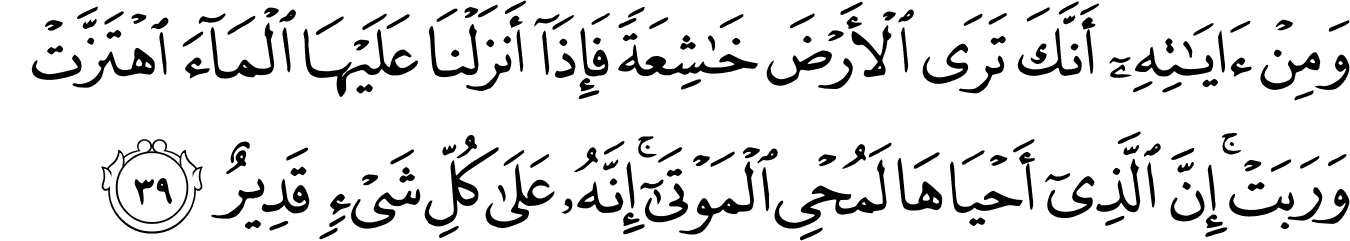 وَمِنْ ءَايَـٰتِهِۦٓ أَنَّكَ تَرَى ٱلْأَرْضَ خَـٰشِعَةً فَإِذَآ أَنزَلْنَا عَلَيْهَا ٱلْمَآءَ ٱهْتَزَّتْ
وَرَبَتْ ۚ إِنَّ ٱلَّذِىٓ أَحْيَاهَا لَمُحْىِ ٱلْمَوْتَىٰٓ ۚ إِنَّهُۥ عَلَىٰ كُلِّ شَىْءٍ قَدِيرٌ ٣٩